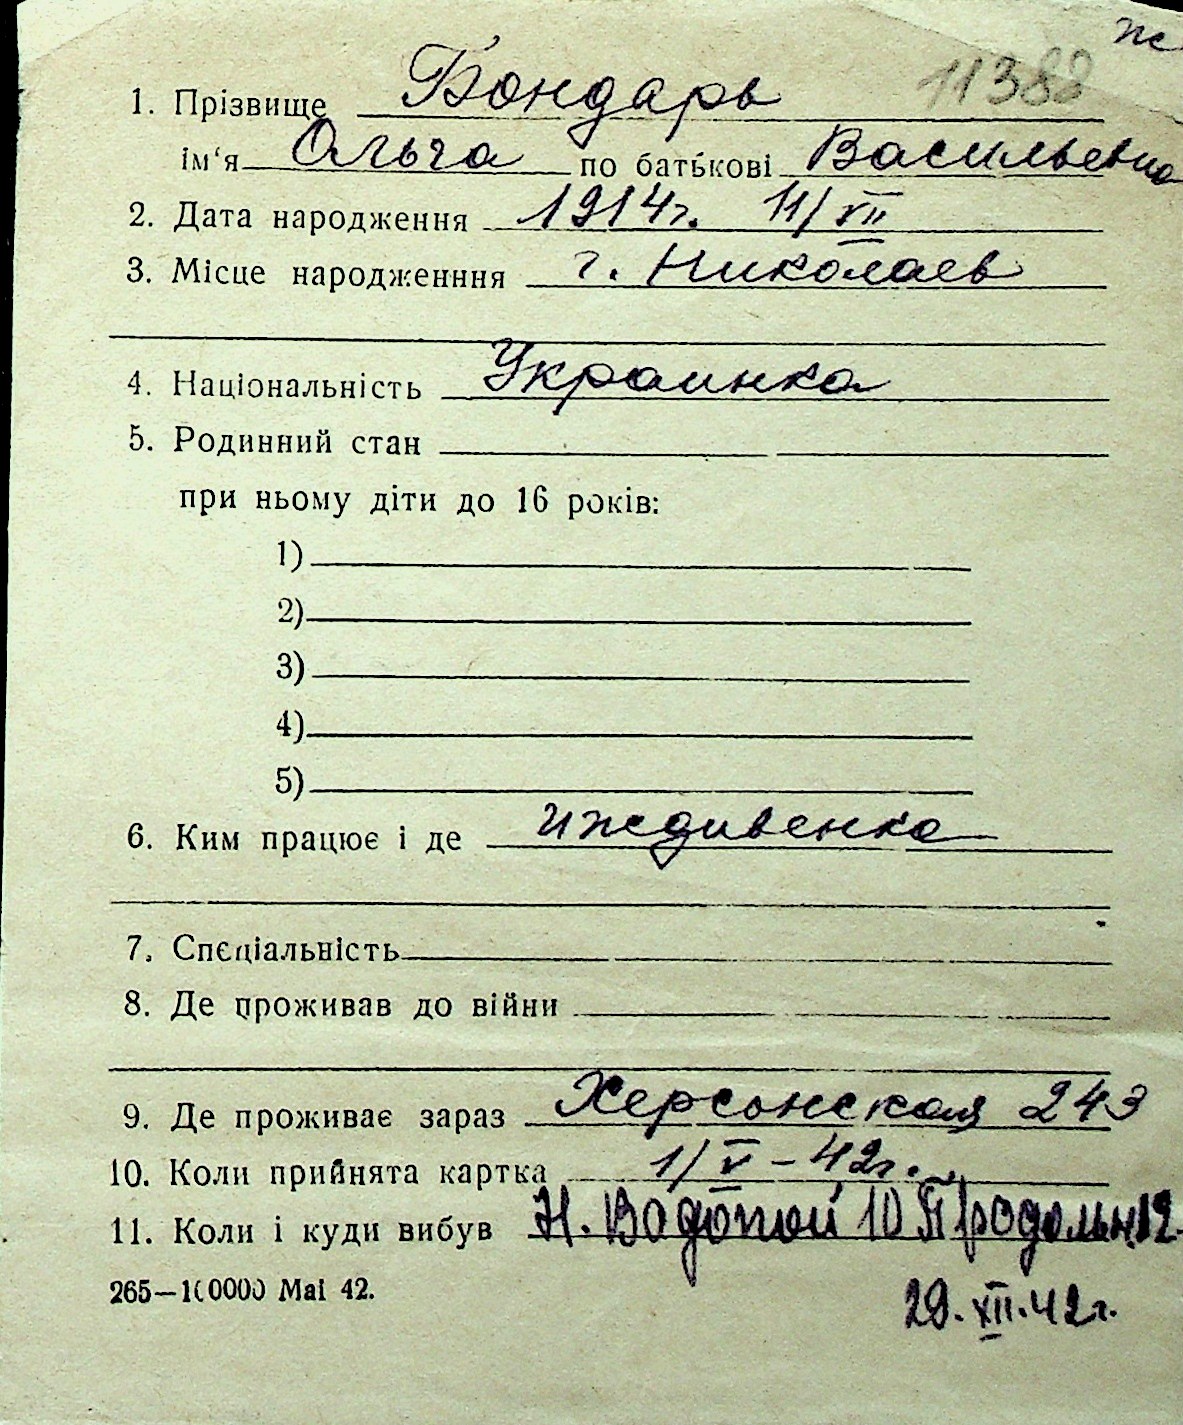 ж
11388
1. Прізвище Бондарь
ім‘я Ольга по батькові Васильевна
2. Дата народження 1914г. 11/VII
3. Місце народженння г. Николаев
4. Національність Украинка
5. Родинний стан
при ньому діти до 16 років:
1)
2)
3)
4)
5)
6. Ким працює і де иждивенка
7. Спеціальність
8. Де проживав до війни
9. Де проживає зараз Херсонская 243
10. Коли прийнята картка 1/V – 42г.
11. Коли і куди вибув Н. Водопой 10 Продольн. 12
265—100000 Mai 42.
29.XII.42г.